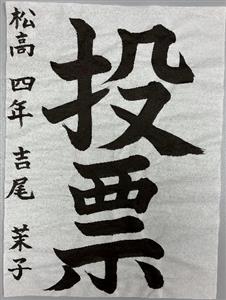 投票
松高 四年 吉尾 茉子